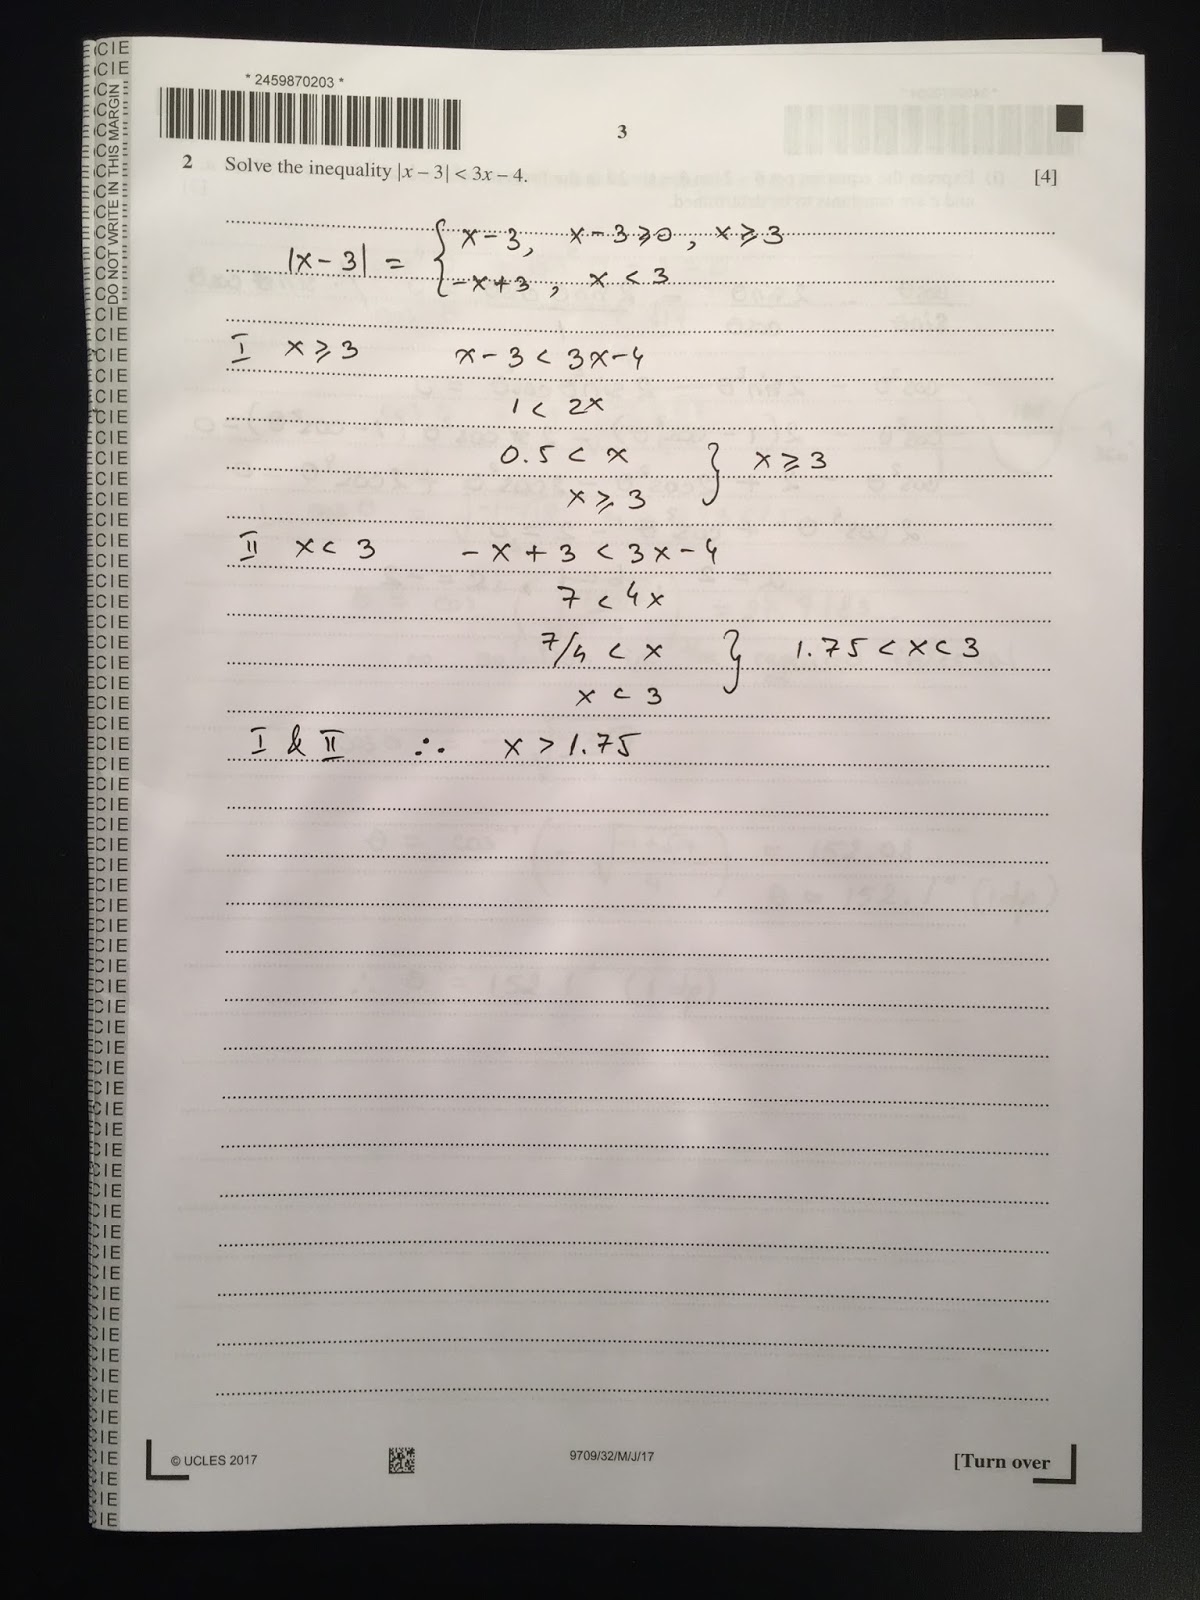 * 2459870203 *
3
2 Solve the inequality |x – 3| < 3x – 4. [4]
|x - 3| = { x - 3, x - 3 ⩾ 0, x ⩾ 3
-x + 3, x < 3
I x ⩾ 3 x - 3 < 3x - 4
1 < 2x
0.5 < x } x ⩾ 3
x ⩾ 3
II x < 3 - x + 3 < 3x - 4
7 < 4x
7/4 < x } 1.75 < x < 3
x < 3
I & II ∴ x > 1.75
© UCLES 2017 9709/32/M/J/17 [Turn over
DO NOT WRITE IN THIS MARGIN